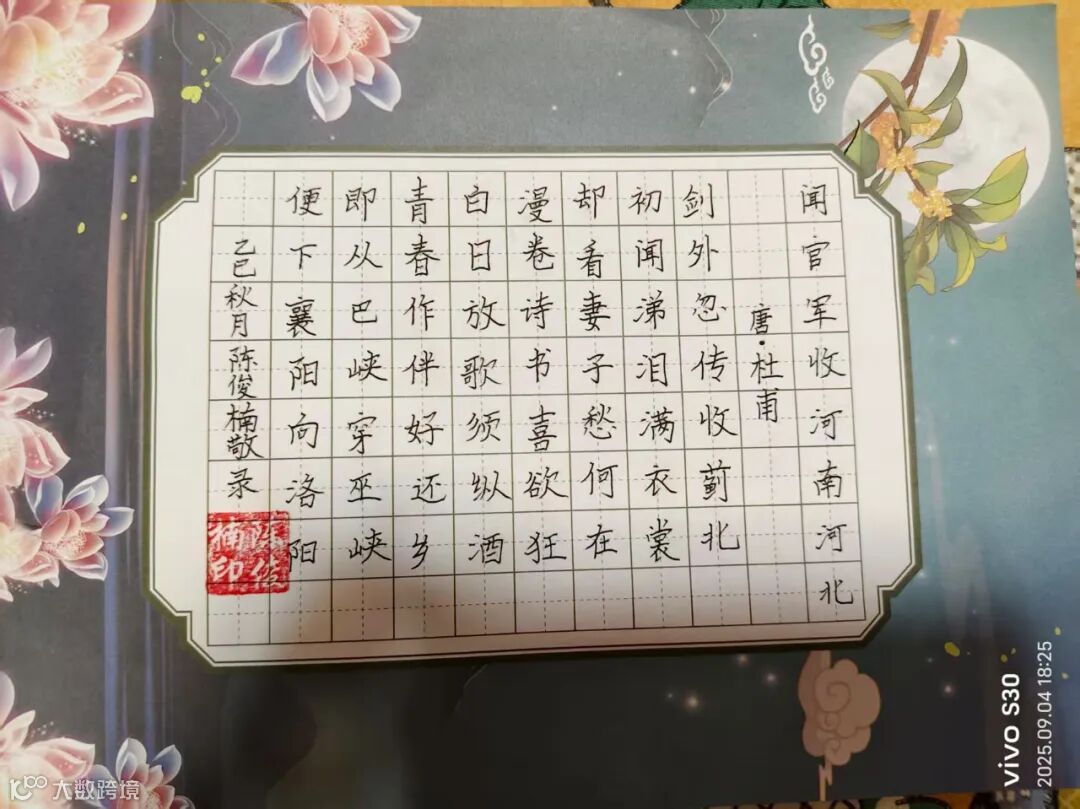 闻官军收河南河北
唐·杜甫
剑外忽传收蓟北
初闻涕泪满衣裳
却看妻子愁何在
漫卷诗书喜欲狂
白日放歌须纵酒
青春作伴好还乡
即从巴峡穿巫峡
便下襄阳向洛阳
乙巳秋月陈俊楠敬录
陈俊楠印
vivo S30
2025.09.04 18:25
大数跨境